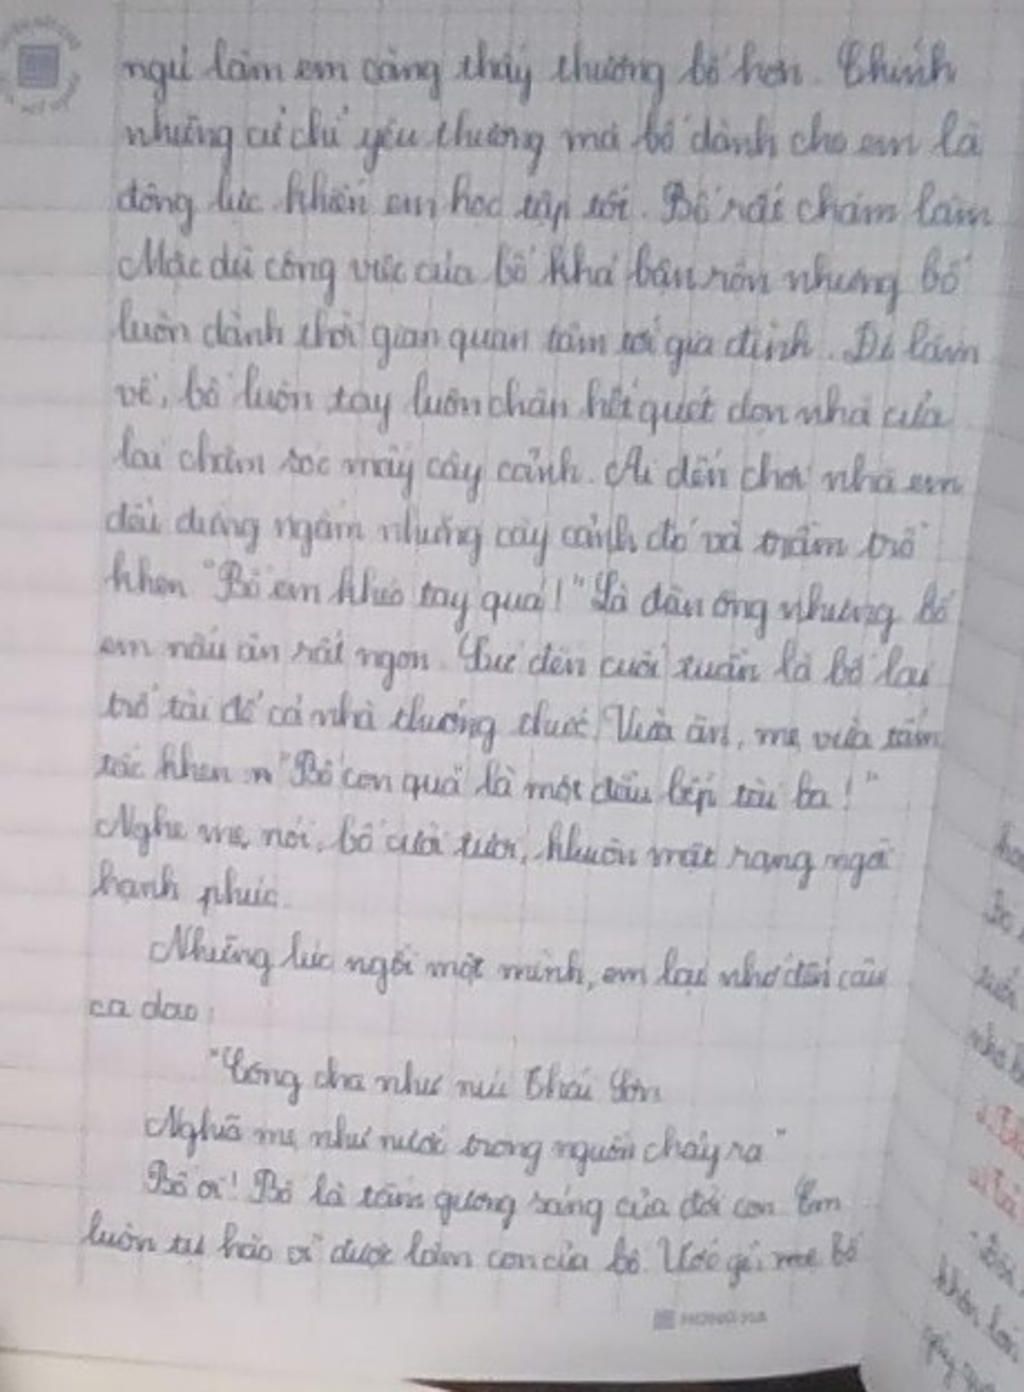 ngủ làm em càng thấy thương bố hơn. Chính
những cử chỉ yêu thương mà bố dành cho em là
động lực khiến em học tập tốt. Bố rất chăm làm
Mặc dù công việc của bố khá bận rộn nhưng bố
luôn dành thời gian quan tâm tới gia đình. Đi làm
về, bố luôn tay luôn chân hết quét dọn nhà cửa
lại chăm sóc mấy cây cảnh. Ai đến chơi nhà em
đều đứng ngắm những cây cảnh đó và trầm trồ
khen "Bố em khéo tay quá!" Là đàn ông nhưng bố
em nấu ăn rất ngon. Cứ đến cuối tuần là bố lại
trổ tài để cả nhà thưởng thức. Vừa ăn, mẹ vừa tấm
tắc khen "Bố con quả là một đầu bếp tài ba!"
Nghe mẹ nói, bố cười tươi, khuôn mặt rạng ngời
hạnh phúc.
Những lúc ngồi một mình, em lại nhớ đến câu
ca dao:
"Công cha như núi Thái Sơn
Nghĩa mẹ như nước trong nguồn chảy ra"
Bố ơi! Bố là tấm gương sáng của đời con. Em
luôn tự hào vì được làm con của bố. Ước gì, mẹ bố
HONG HA